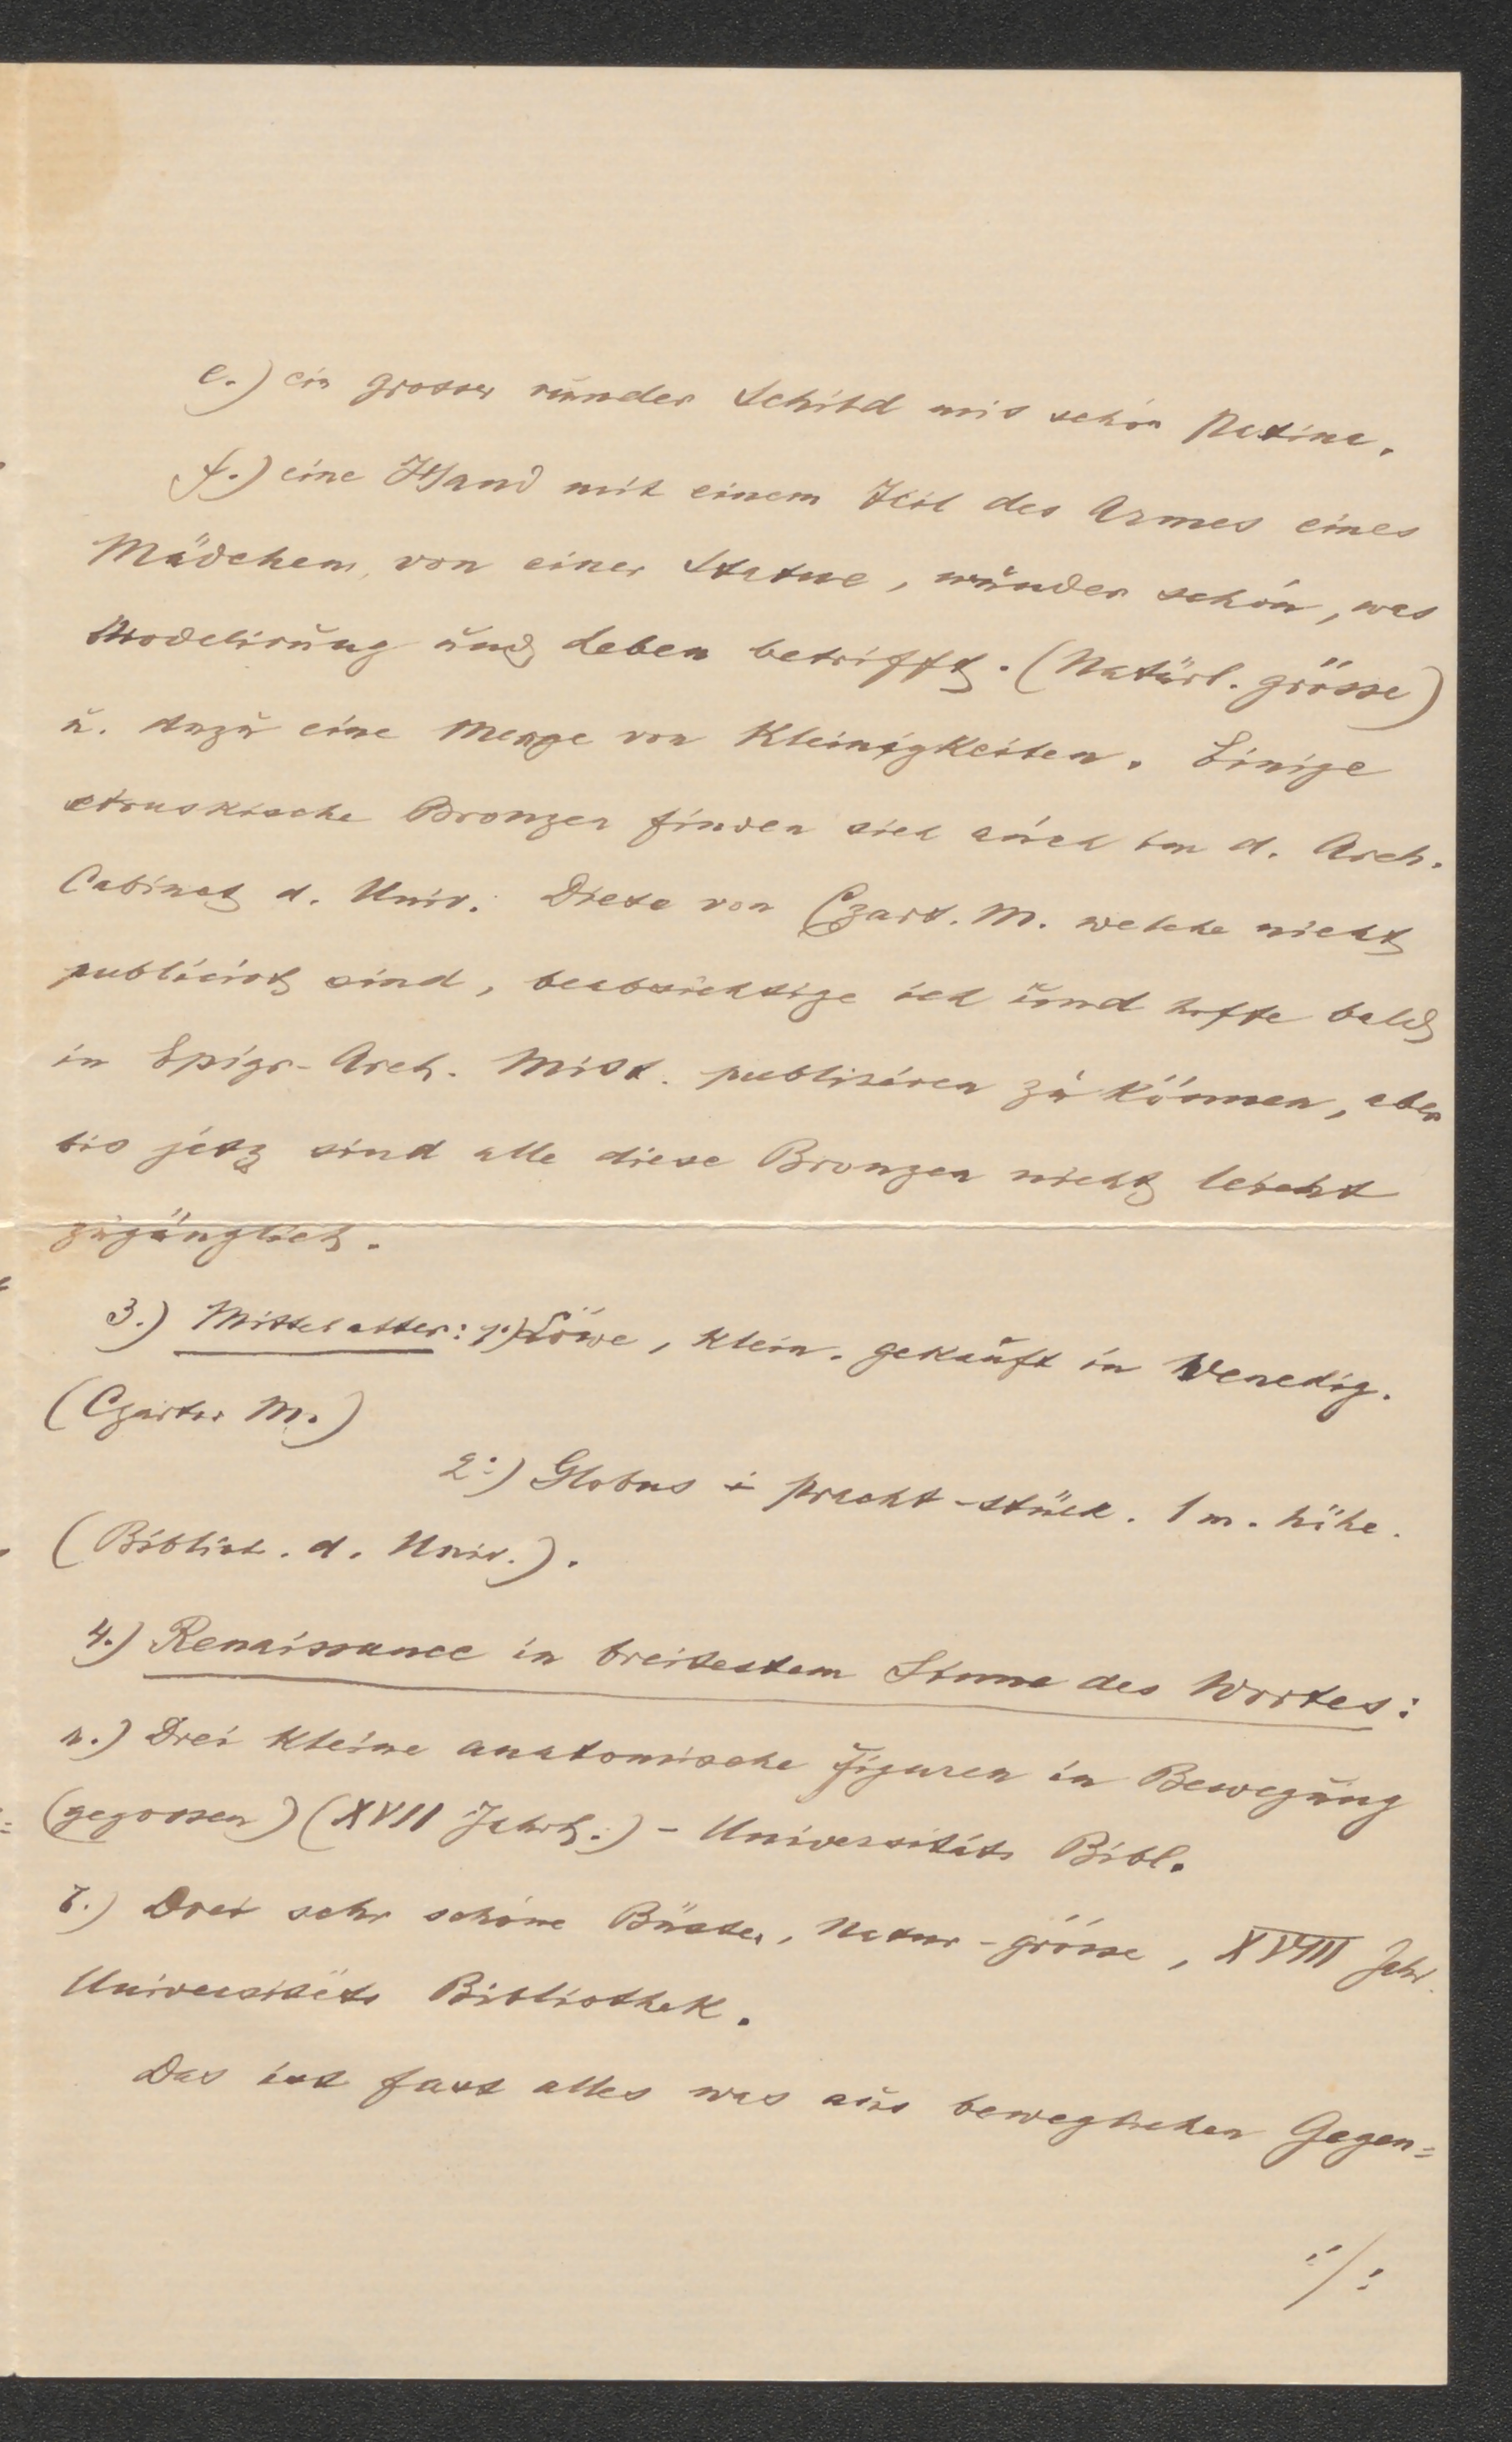 e.) ein grosser runder Schild mit schön Patina.
f.) eine Hand mit einem Teil des Armes eines
Mädchens, von einer Statue, wunder schön, was
Modelirung und Leben betrifft. (Natürl. grösse)
u. dazu eine Menge von Kleinigkeiten. Einige
etruskische Bronzen finden sich auch im d. Arch.
Cabinet d. Univ. Diese von Czart. M. welche nicht
publicirt sind, beabsichtige ich und hoffe bald
in Epigr-Arch. Mitt. publiziren zu können, aber
bis jetz sind alle diese Bronzen nicht leicht
zugänglich.
3.) Mittelalter: 1.) Löwe, klein. gekauft in Venedig.
(Czartor M.)
2.) Globus pracht-stück. 1 m. höhe.
(Biblioth. d. Univ.).
4.) Renaissance in breitestem Sinne des Wortes:
a.) Drei kleine anatomische Figuren in Bewegung
(gegossen) (XVII Jahrh.) - Universitäts Bibl.
b.) Drei sehr schöne Büsten, Natur-grösse, XVIII Jahr.
Universitäts Bibliothek.
Das ist fast alles was aus beweglichen Gegen=
:/: